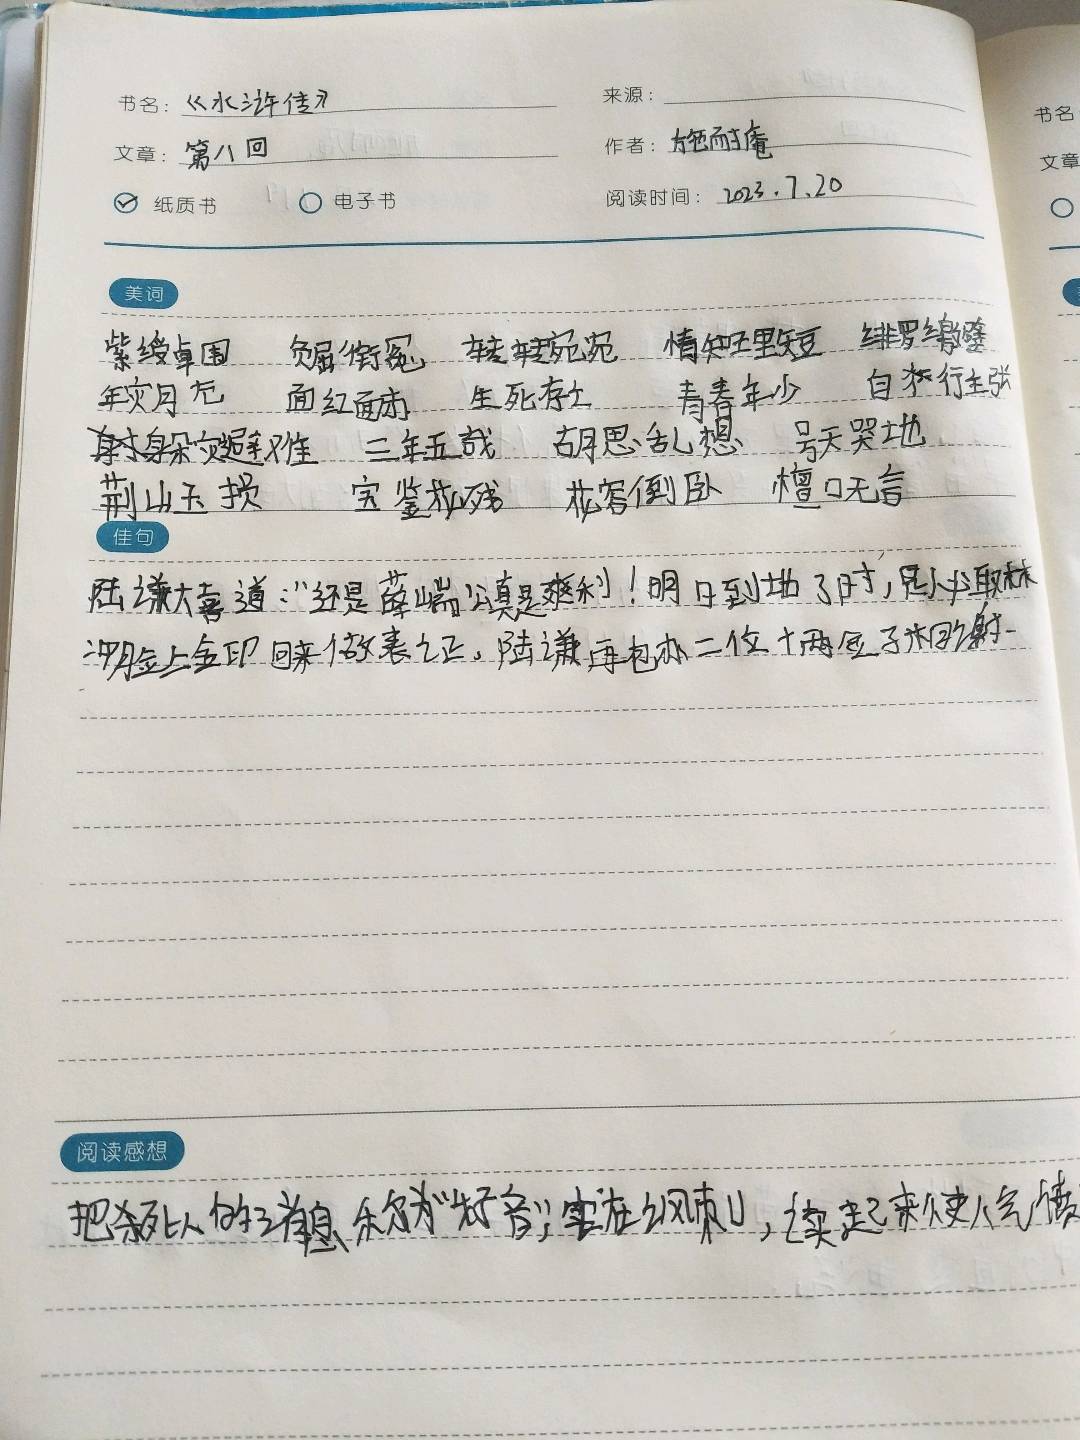 书名：《水浒传》 来源：
文章：第八回 作者：施耐庵
纸质书 电子书 阅读时间：2023.7.20
书名
文章
美词
紫绶卓围 负屈衔冤 转转宛宛 情知理短 绯罗缴壁
年灾月厄 面红面赤 生死存亡 青春年少 自行主张
躲灾避难 三年五载 胡思乱想 号天哭地
荆山玉损 宝鉴花残 花容倒卧 檀口无言
佳句
陆谦大喜道："还是薛端公真是爽利！明日到地了时，是必取林
冲脸上金印回来做表证。陆谦再包办二位十两金子相谢
阅读感想
把杀死人的消息称为"好音"，实在讽刺，读起来使人气愤